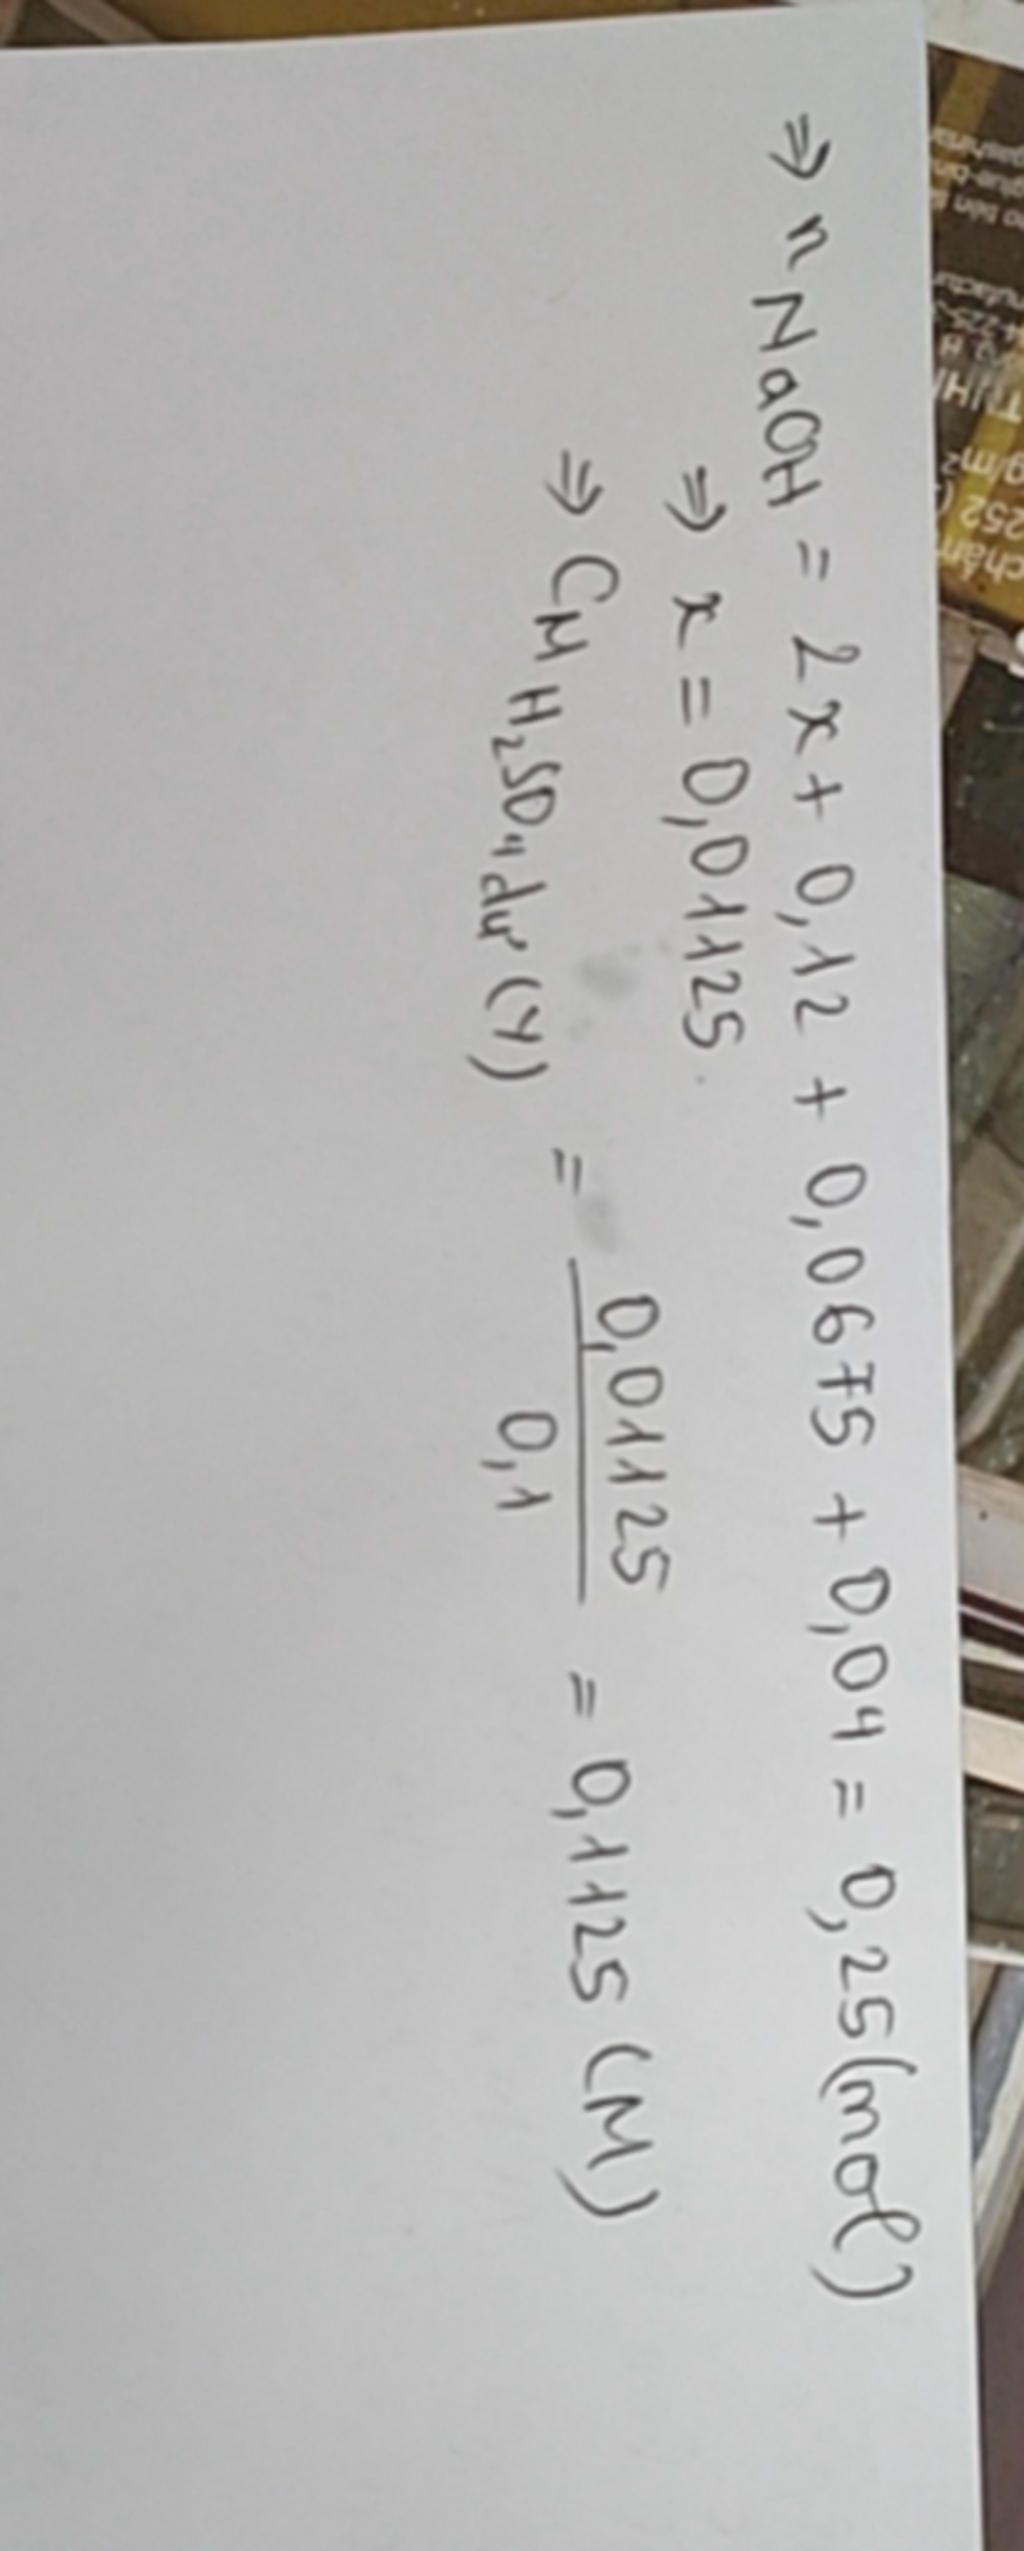 ⇒ n NaOH = 2x + 0,12 + 0,0675 + 0,04 = 0,25 (mol)
⇒ x = 0,01125
⇒ CM H2SO4 dư (Y) = 0,01125 / 0,1 = 0,1125 (M)
252
g/m²